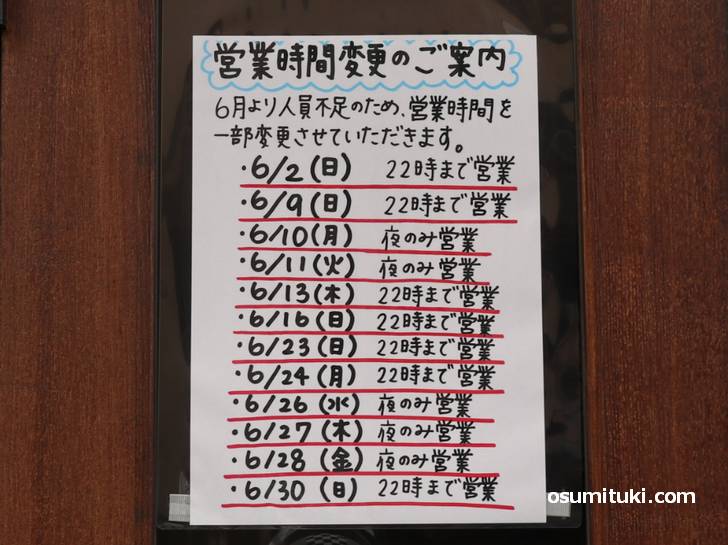 営業時間変更のご案内
6月より人員不足のため、営業時間を
一部変更させていただきます。
・6/2(日) 22時まで営業
・6/9(日) 22時まで営業
・6/10(月) 夜のみ営業
・6/11(火) 夜のみ営業
・6/13(木) 22時まで営業
・6/16(日) 22時まで営業
・6/23(日) 22時まで営業
・6/24(月) 22時まで営業
・6/26(水) 夜のみ営業
・6/27(木) 夜のみ営業
・6/28(金) 夜のみ営業
・6/30(日) 22時まで営業
osumituki.com